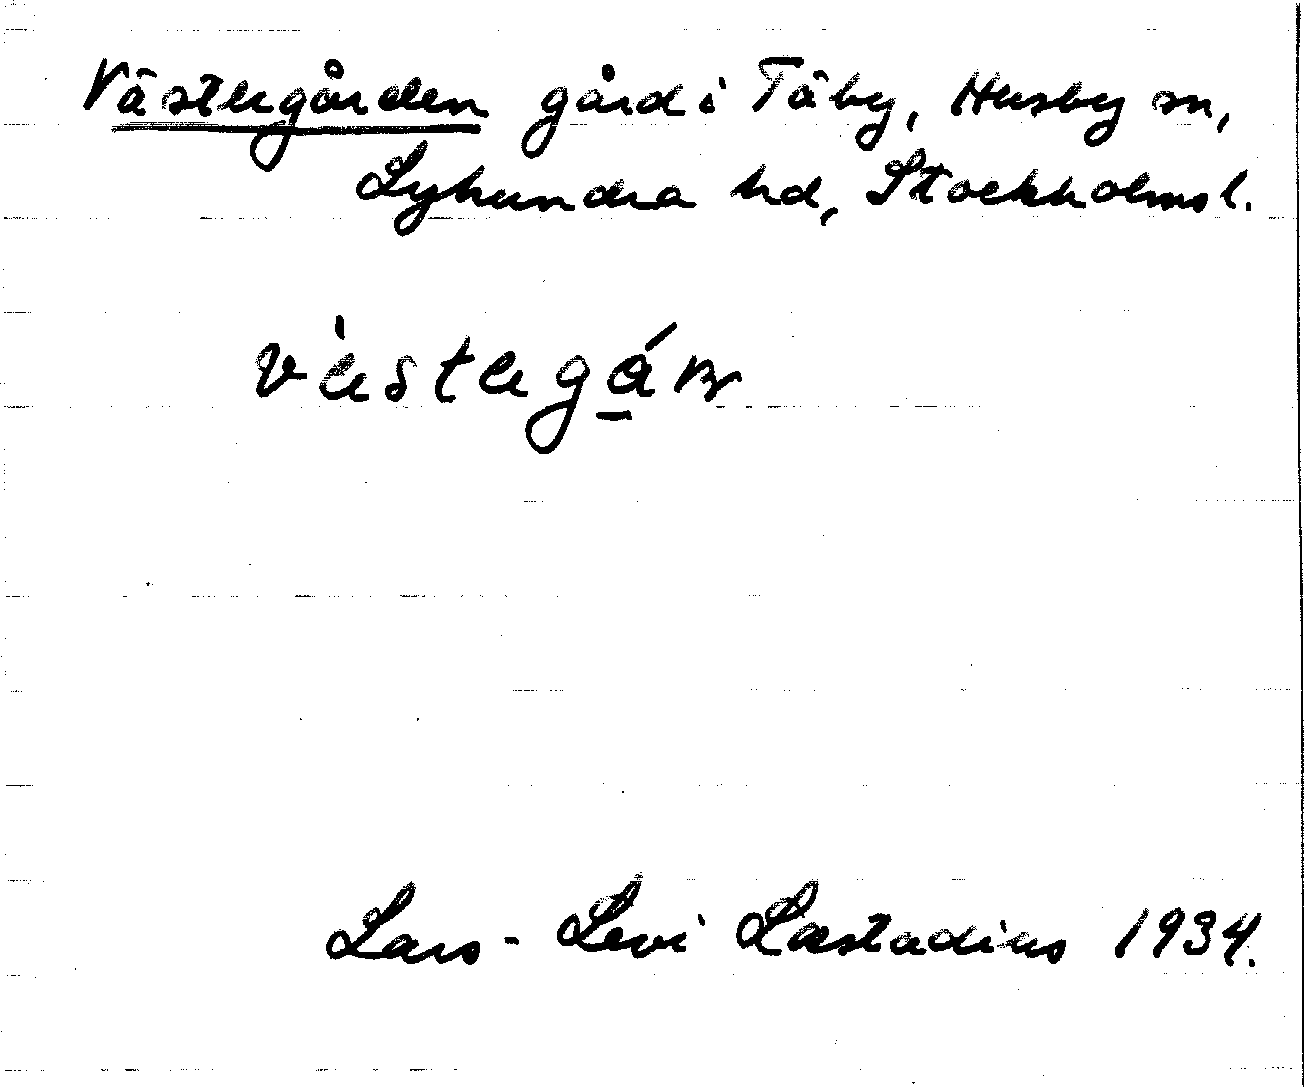 Västergården gård i Täby, Husby sn,
Lyhundra hd, Stockholms l.
Lars-Levi Læstadius 1934.